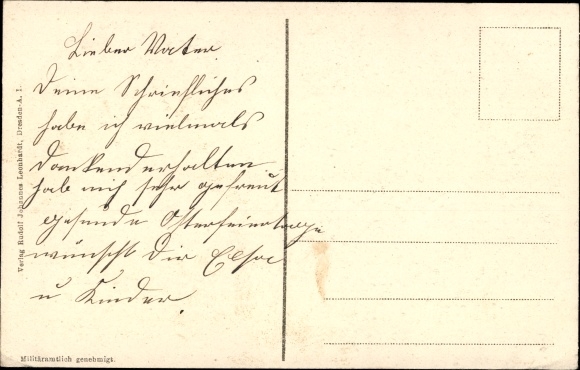 Lieber Vater
Deine Schriefliches
habe ich vielmals
Dankend erhalten
hab mich sehr gefreut
gesunde Osterfeiertage
wünscht Dir Elsa
u Kinder.
Verlag Rudolf Johannes Leonhardt, Dresden-A. 1.
Militäramtlich genehmigt.